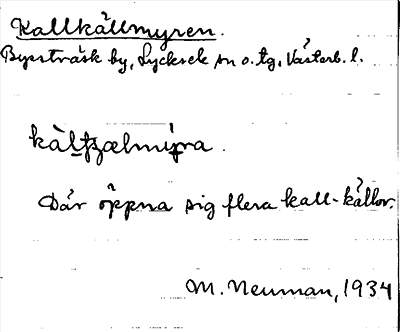 Kallkällmyren.
Byssträsk by, Lycksele sn o. tg, Västerb. l.
Där öppna sig flera kall-källor.
M. Neuman, 1934